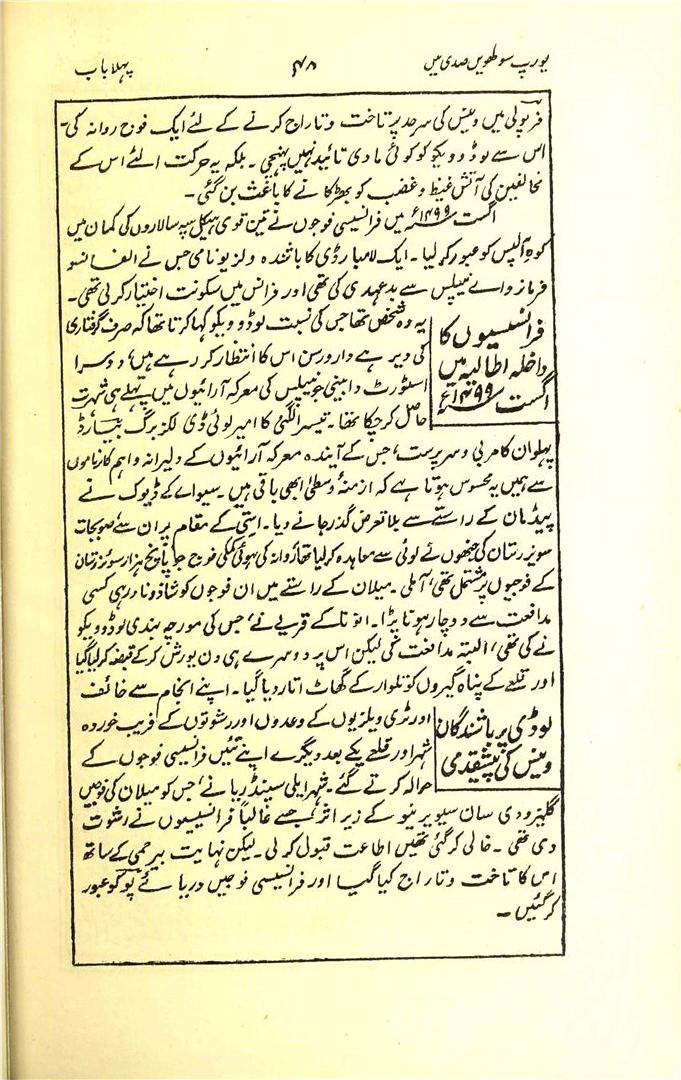 یورپ سولھویں صدی میں ۴۸ پہلا باب
فریولی میں وینس کی سرحد پر تاخت و تاراج کرنے کے لئے ایک فوج روانہ کی۔
اس سے لوڈوویکو کو کوئی مادی تائید نہیں پہنچی ۔ بلکہ یہ حرکت الٹے اس کے
مخالفین کی آتش غیظ و غضب کو بھڑکانے کا باعث بن گئی ۔
اگست ۱۴۹۹ء میں فرانسیسی فوجوں نے تین قوی ہیکل سپہ سالاروں کی کمان میں
کوہ آلپس کو عبور کر لیا ۔ ایک لامبارڈی کا باشندہ ولزیو نامی جس نے الفانسو
فرمانروائے نیپلس سے بد عہدی کی تھی اور فرانس میں سکونت اختیار کر لی تھی ۔
فرانسیسیوں کا
داخلہ اطالیہ میں
اگست ۱۴۹۹ء
یہ وہ شخص تھا جس کی نسبت لوڈوویکو کہا کرتا تھا کہ صرف گرفتاری
کی دیر ہے دار و رسن اس کا انتظار کر رہے ہیں، دوسرا
اسٹورٹ دابینی جو نیپلس کی معرکہ آرائیوں میں پہلے ہی شہرت
حاصل کر چکا تھا ۔ تیسرا لگنی کا امیر لوئی ڈی لکزبرگ بیارڈ
پہلوان کا مربی و سرپرست، جس کے آیندہ معرکہ آرائیوں کے دلیرانہ و اہم کارناموں
سے ہمیں یہ محسوس ہوتا ہے کہ ازمنۂ وسطیٰ ابھی باقی ہیں ۔ سیوائے کے ڈیوک نے
پیڈمان کے راستے سے بلا تعرض گذر جانے دیا ۔ ایستی کے مقام پر ان سے صوبجات
سویزرستان کی جنھوں نے لوئی سے معاہدہ کر لیا تھا روانہ کی ہوئی کمکی فوج جو پانچ ہزار سوئزرستان
کے فوجیوں پر مشتمل تھی، آملی ۔ میلان کے راستے میں ان فوجوں کو شاذ و نادر ہی کسی
مدافعت سے دوچار ہونا پڑا ۔ انونا کے قریے نے، جس کی مورچہ بندی لوڈوویکو
نے کی تھی، البتہ مدافعت کی لیکن اس پر دوسرے ہی دن یورش کر کے قبضہ کر لیا گیا
اور قلعے کے پناہ گیروں کو تلوار کے گھاٹ اتار دیا گیا ۔ اپنے انجام سے خائف
لوڈی پر باشندگان
وینس کی پیشقدمی
اور ٹری ویلزیوں کے وعدوں اور رشوتوں کے فریب خوردہ
شہر اور قلعے یکے بعد دیگرے اپنے تئیں فرانسیسی فوجوں کے
حوالہ کرتے گئے ۔ شہر ایلی سینڈریا نے، جس کو میلان کی فوجیں
گلیزو دی سان سیویرینو کے زیر اثر جسے غالباً فرانسیسیوں نے رشوت
دی تھی ۔ خالی کر گئی تھیں اطاعت قبول کر لی ۔ لیکن نہایت بیرحمی کے ساتھ
اس کا تاخت و تاراج کیا گیا اور فرانسیسی فوجیں دریائے پو کو عبور
کر گئیں ۔